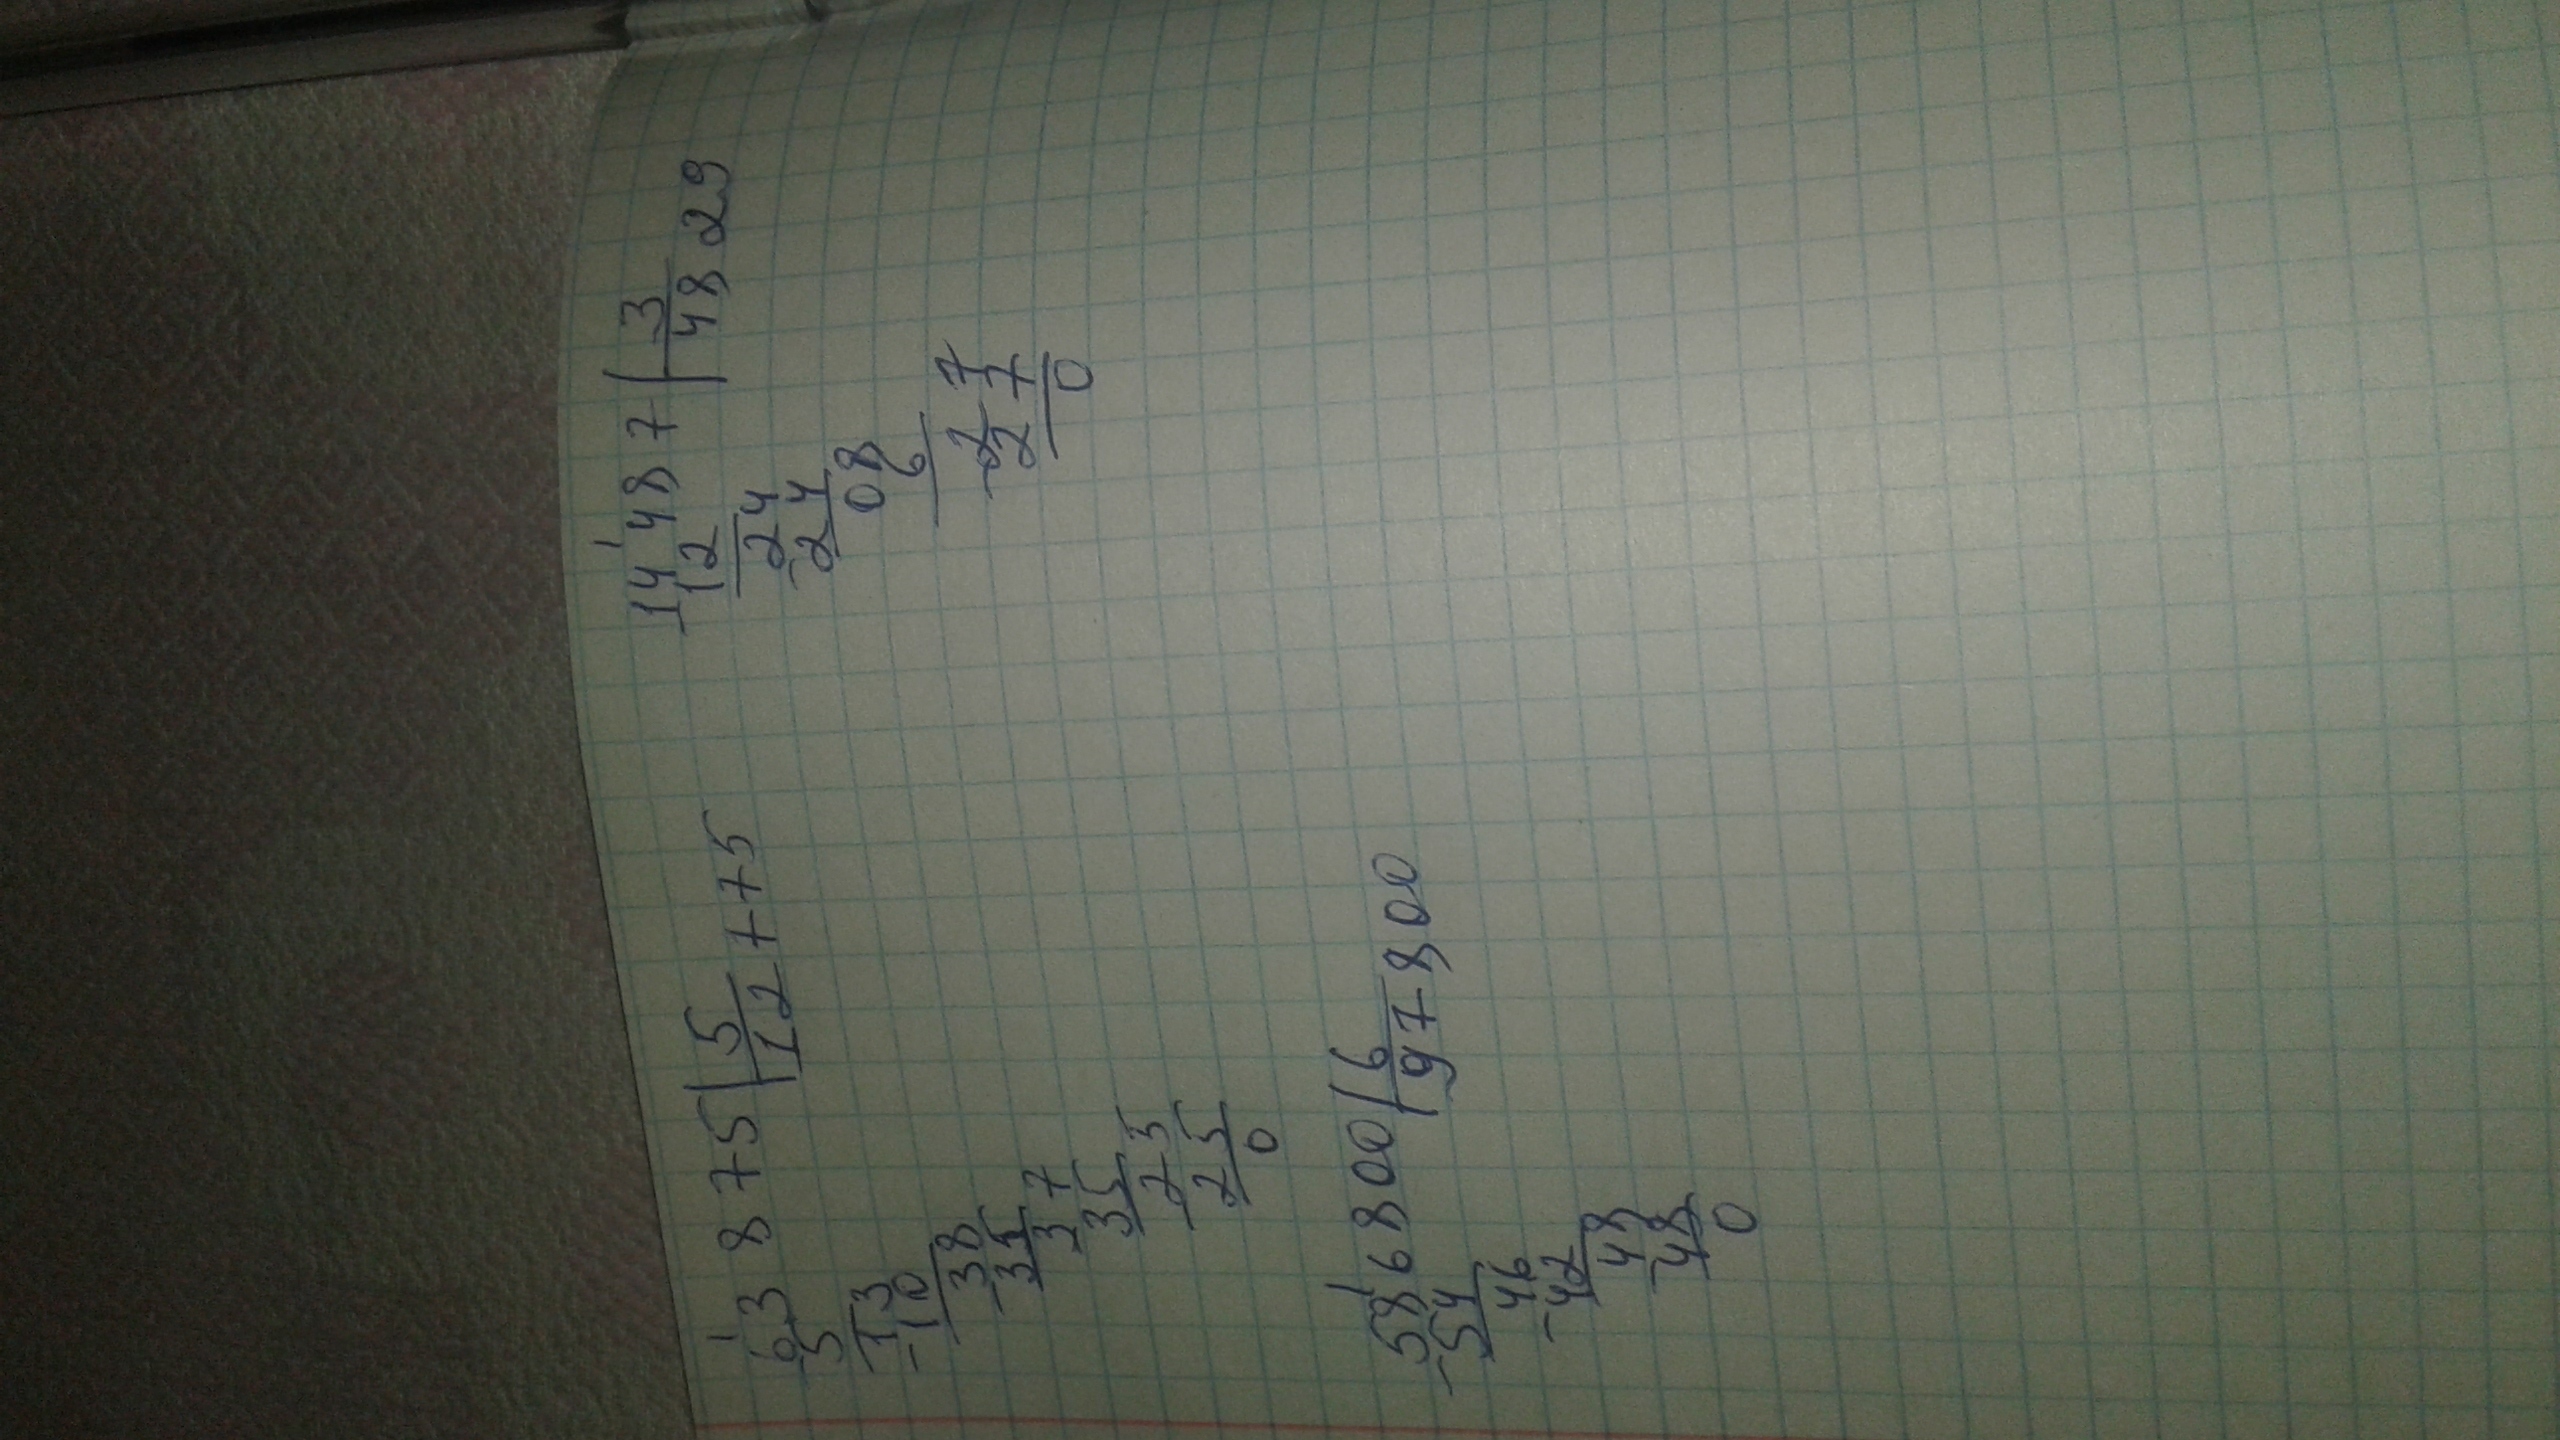 63875 | 5
5 12775
-13
10
38
-35
37
35
-25
25
0
-14487 | 3
12 4829
24
-24
08
6
-27
27
0
-586800 | 6
54 97800
46
-42
48
-48
0